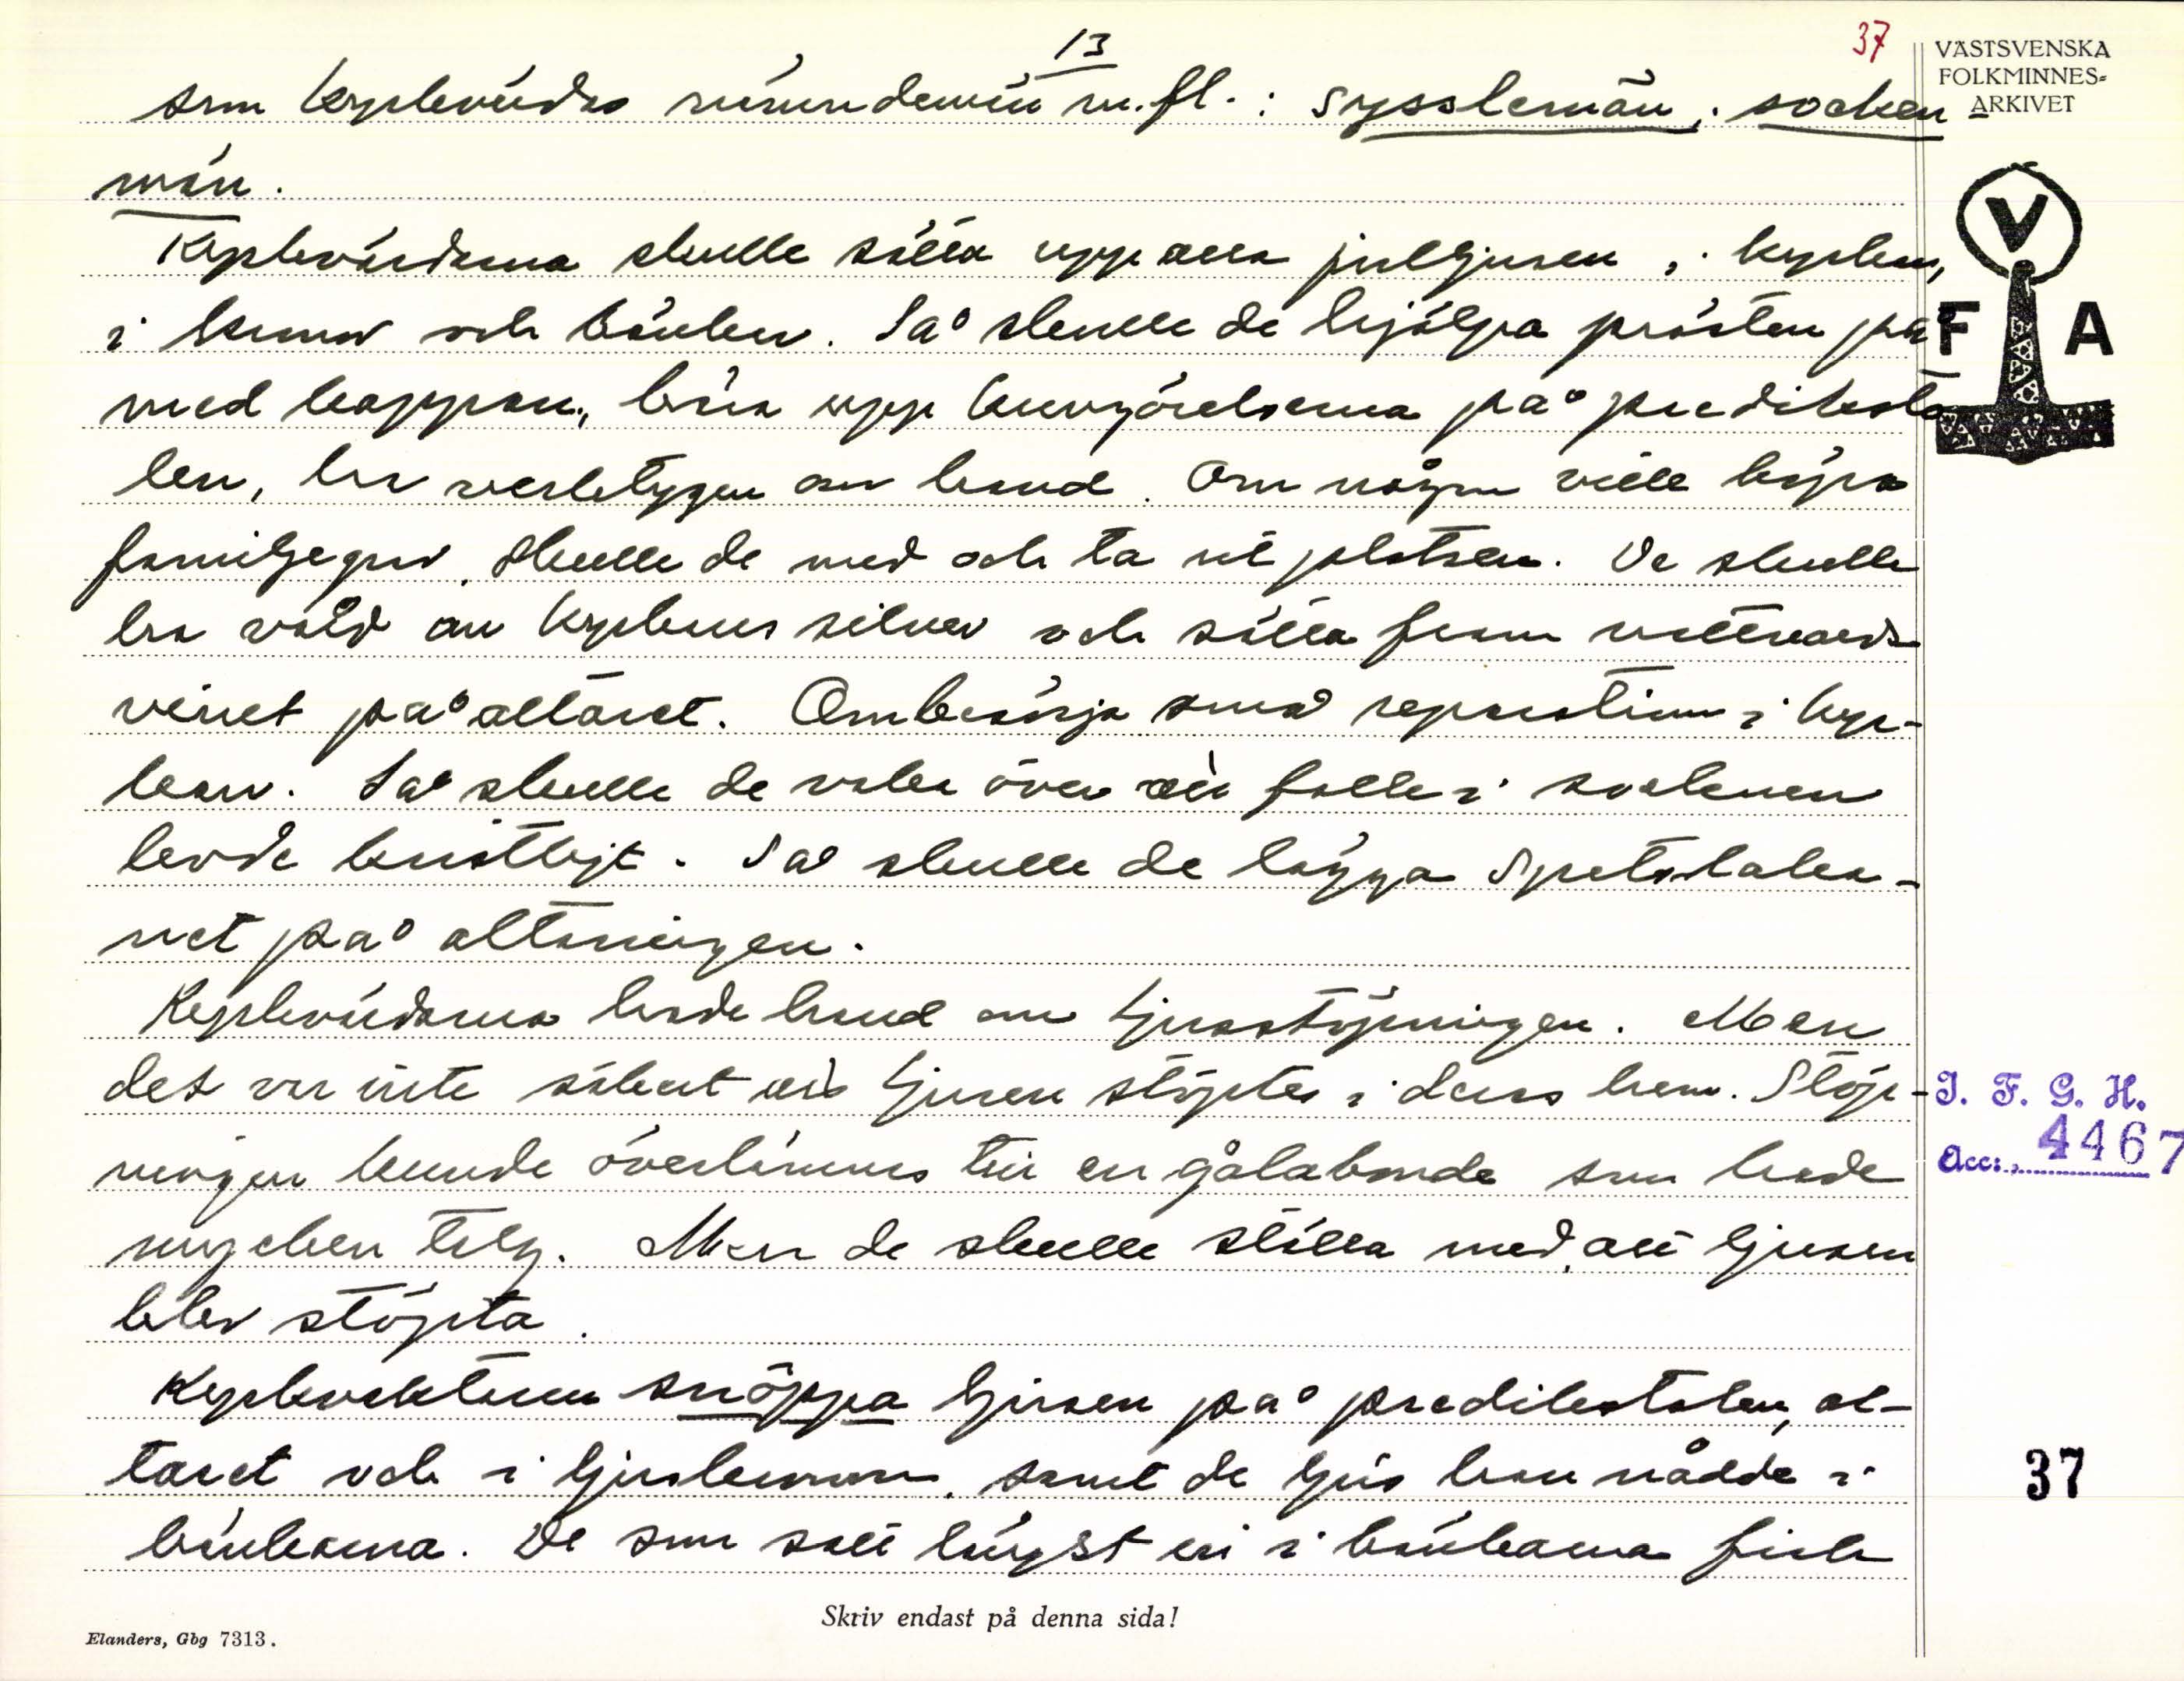 13
37
VÄSTSVENSKA
FOLKMINNES=
ARKIVET
som kyrkvärdar nämndemän m.fl.: sysslemän, socken
män.
Kyrkvärdarna skulle sätta upp alla julljusen, i kyrkan,
i kronor och bänkar. Så skulle de hjälpa prästen på
med kappan, bära upp kungörelserna på predikesto
len, ha verktygen om hand. Om någon ville köpa
familjegrav skulle de med och ta ut platsen. De skulle
ha vård om kyrkans silver och sätta fram nattvards
vinet på altaret. Ombesörja små reparationer i kyr-
kan. Så skulle de vaka över att folk i socknen
levde kristligt. Så skulle de lägga
net på altarringen.
Kyrkvärdarna hade hand om ljusstöpningen. Men
det var inte säkert att ljusen stöptes i deras hem. Stöp-
ningen kunde överlämnas till en gålabonde som hade
mycken talg. Men de skulle ställa med, att ljusen
blev stöpta.
Kyrkvaktaren snöppa ljusen på predikstolen, al-
taret och i ljuskronorna, samt de ljus han nådde i
bänkarna. De som satt längst in i bänkarna fick
F V A
I. F. G. H.
Acc: 4467
37
Skriv endast på denna sida!
Elanders, Gbg 7313.